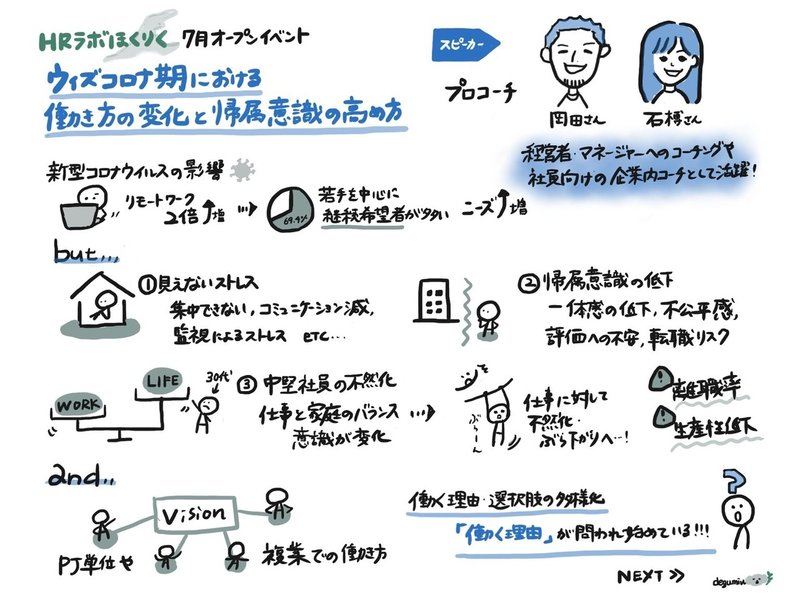 HRラボほくりく 7月オープンイベント
ウィズコロナ期における
働き方の変化と帰属意識の高め方
スピーカー
プロコーチ
岡田さん
石榑さん
経営者・マネージャーへのコーチングや
社員向けの企業内コーチとして活躍!
新型コロナウイルスの影響
リモートワーク
2倍増
69.4%
若手を中心に
継続希望者が多い
ニーズ増
but...
①見えないストレス
集中できない,コミュニケーション減,
監視によるストレス ETC...
②帰属意識の低下
一体感の低下,不公平感,
評価への不安,転職リスク
WORK
LIFE
30代
③中堅社員の不燃化
仕事と家庭のバランス
意識が変化
ぶらーん
仕事に対して
不燃化・
ぶら下がりへ…!
離職率
生産性低下
and..
Vision
PJ単位や
複業での働き方
働く理由・選択肢の多様化
「働く理由」が問われ始めている!!!
?
NEXT >>
degumiu